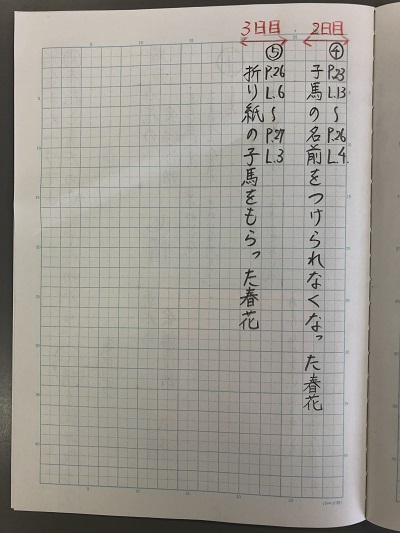 2日目
④
P.23
L.13
〜
P.26
L.4.
子馬の名前をつけられなくなった春花
3日目
⑤
P.26
L.6
〜
P.27
L.3
折り紙の子馬をもらった春花